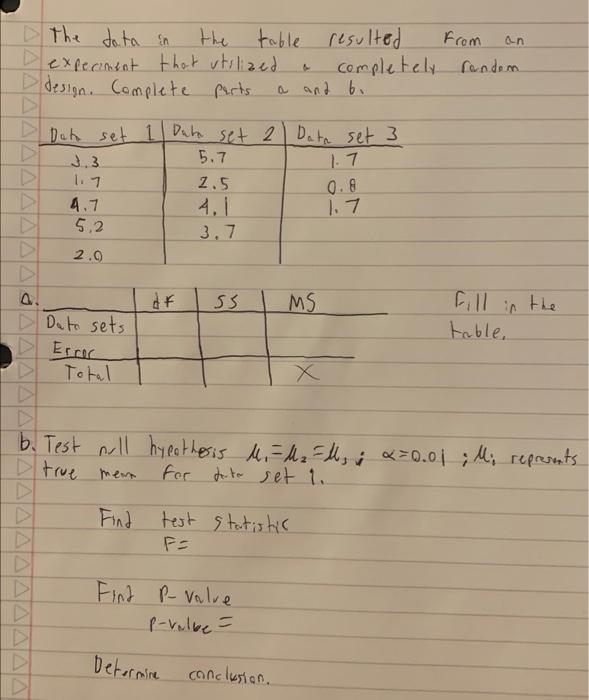 The data in the table resulted From an
experiment that utilized a completely random
design. Complete parts a and b.
Data set 1 Data set 2 Data set 3
3.3 5.7 1.7
1.7 2.5 0.8
4.7 4.1 1.7
5.2 3.7
2.0
a. df SS MS Fill in the
Data sets table.
Error
Total X
b. Test null hypothesis μ₁=μ₂=μ₃; α=0.01; μ₁ represents
true mean for data set 1.
Find test statistic
F=
Find P-value
P-value=
Determine conclusion.